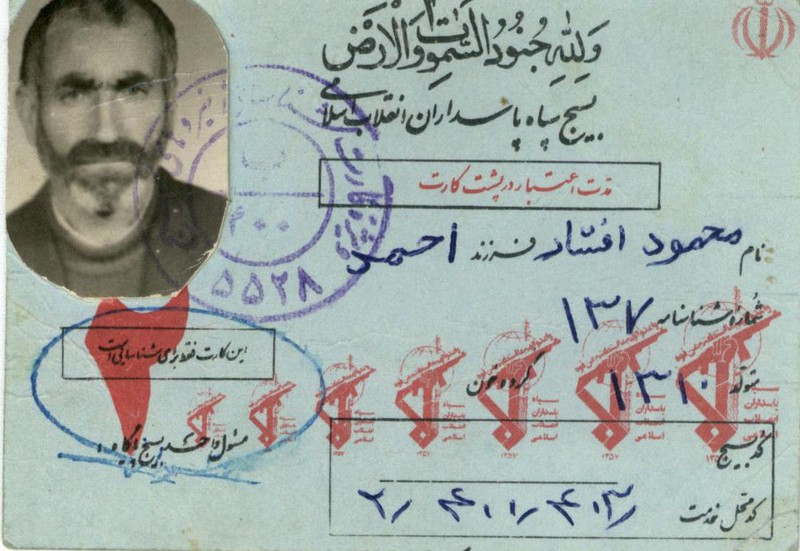 وَلِلّهِ جُنُودُ السَّمواتِ وَالْاَرْضِ
بسیج سپاه پاسداران انقلاب اسلامی
مدت اعتبار در پشت کارت
نام محمود افشار فرزند احمد
شمارهٔ شناسنامه ۱۳۷
متولد ۱۳۱۰ گروه خون
کد بسیج
کد محل خدمت
این کارت فقط برای شناسایی است
مسئول واحد بسیج پایگاه
۴۰۰
۵۵۲۸
سپاه
پاسداران
انقلاب
اسلامی
۱۳۵۷